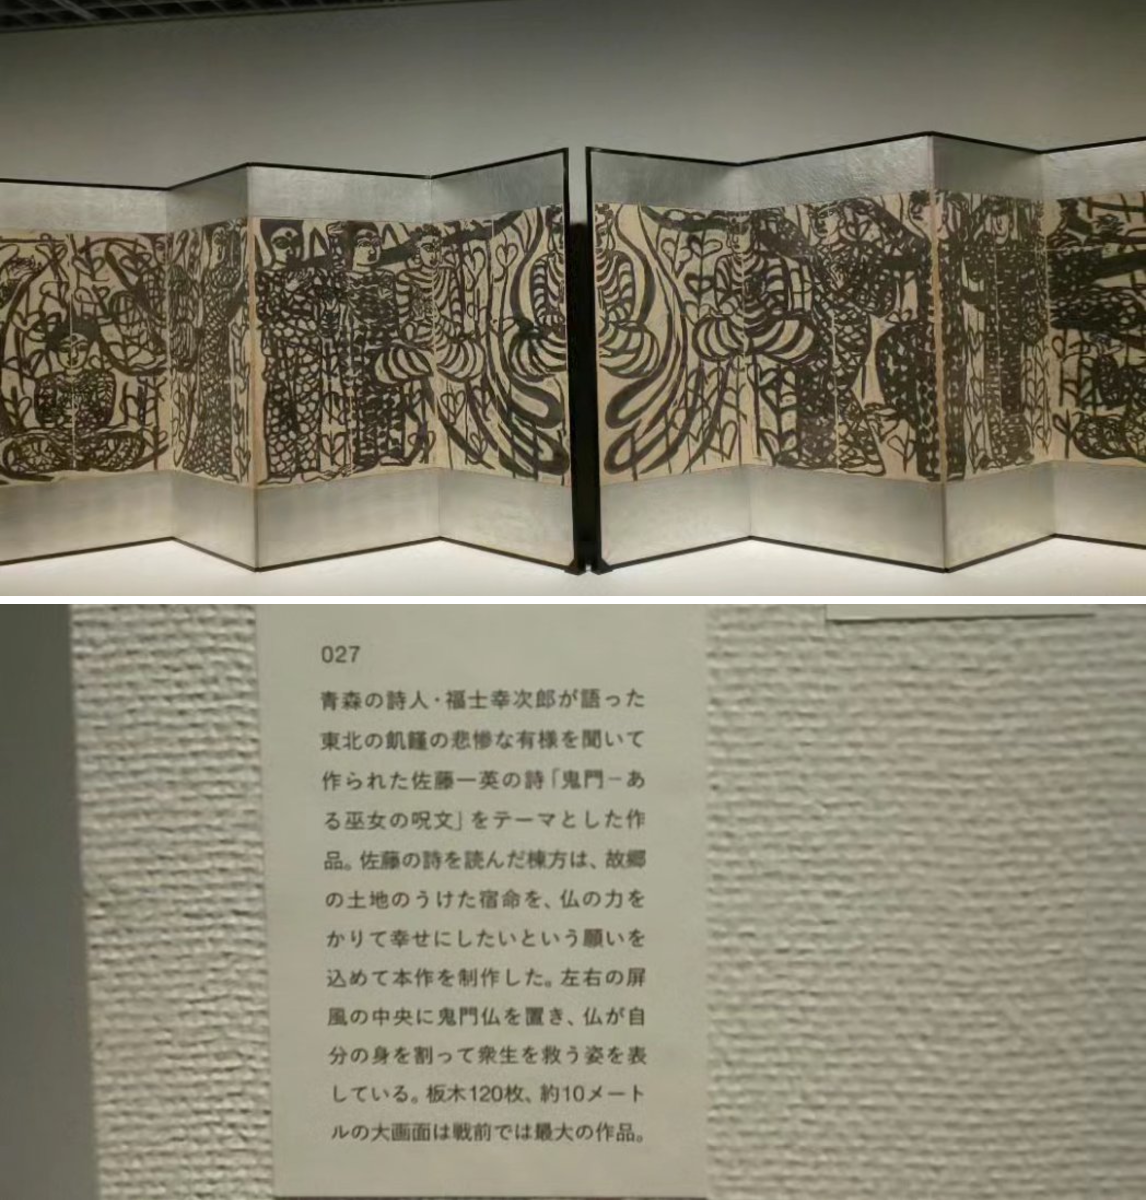 027
青森の詩人・福士幸次郎が語った
東北の飢饉の悲惨な有様を聞いて
作られた佐藤一英の詩「鬼門－あ
る巫女の呪文」をテーマとした作
品。佐藤の詩を読んだ棟方は、故郷
の土地のうけた宿命を、仏の力を
かりて幸せにしたいという願いを
込めて本作を制作した。左右の屏
風の中央に鬼門仏を置き、仏が自
分の身を割って衆生を救う姿を表
している。板木120枚、約10メート
ルの大画面は戦前では最大の作品。